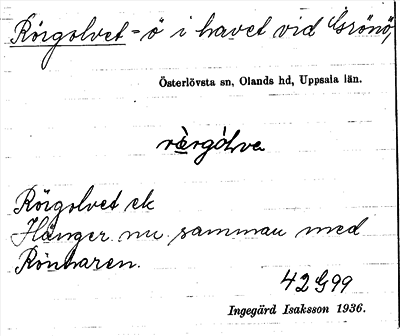 Rörgolvet - ö i havet vid Grönö,
Österlövsta sn, Olands hd, Uppsala län.
Rörgolvet ek
Hänger nu samman med
Rönnaren.
42 G 99
Ingegärd Isaksson 1936.